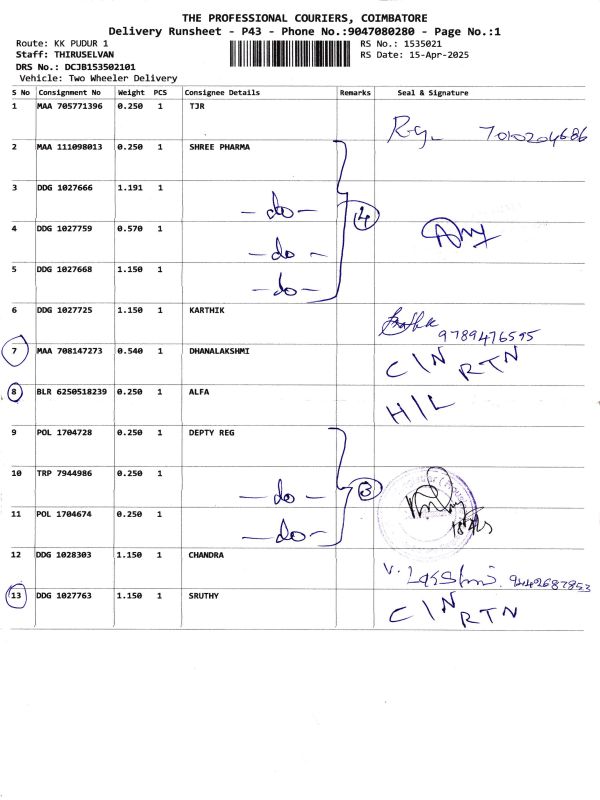 THE PROFESSIONAL COURIERS, COIMBATORE
Delivery Runsheet - P43 - Phone No.:9047080280 - Page No.:1
Route: KK PUDUR 1
Staff: THIRUSELVAN
DRS No.: DCJB153502101
Vehicle: Two Wheeler Delivery
RS No.: 1535021
RS Date: 15-Apr-2025
S No Consignment No Weight PCS Consignee Details Remarks Seal & Signature
1 MAA 705771396 0.250 1 TJR
7010204686
2 MAA 111098013 0.250 1 SHREE PHARMA
3 DDG 1027666 1.191 1
- do -
4
4 DDG 1027759 0.570 1
- do -
5 DDG 1027668 1.150 1
- do -
6 DDG 1027725 1.150 1 KARTHIK
9789476595
7 MAA 708147273 0.540 1 DHANALAKSHMI C/N RTN
8 BLR 6250518239 0.250 1 ALFA H/L
9 POL 1704728 0.250 1 DEPTY REG
10 TRP 7944986 0.250 1
- do -
3
11 POL 1704674 0.250 1
- do -
12 DDG 1028303 1.150 1 CHANDRA
V. Lakshmi. 9442687853
13 DDG 1027763 1.150 1 SRUTHY C/N RTN